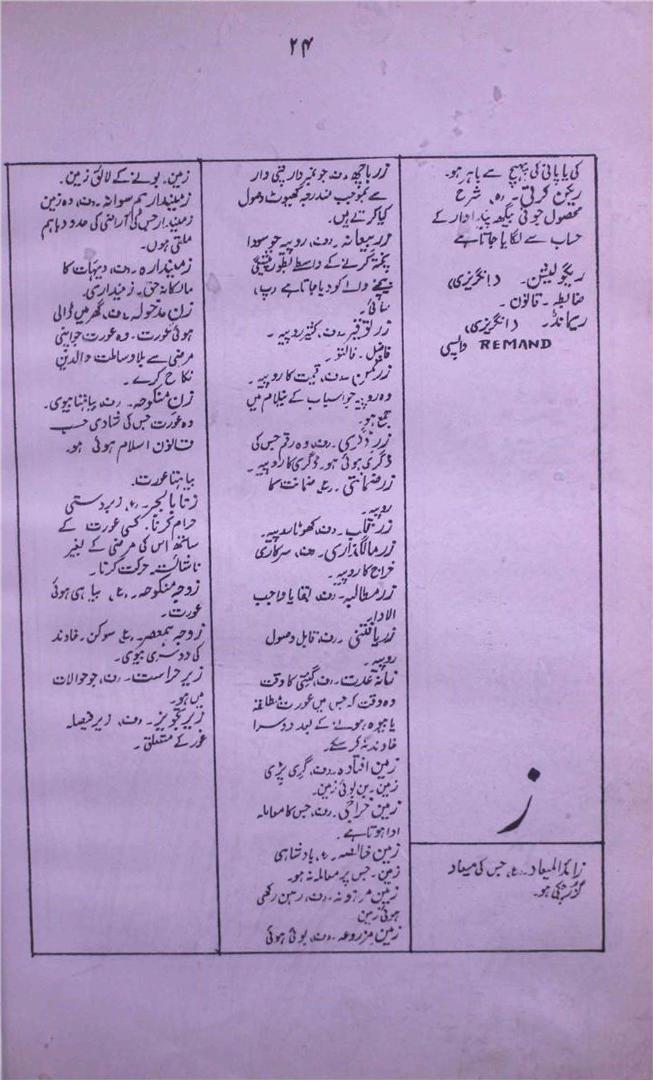 ۲۴
کی یا پانی کی پہنچ سے باہر ہو۔
شرح
محصول جوفی بیگھہ پیداوار کے
حساب سے لگایا جاتا ہے
ریگولیشن۔ (انگریزی)
ضابطہ۔ قانون۔
ریمانڈ۔ (انگریزی)
REMAND واپسی
ز
زائد المیعاد۔ (ع) جس کی میعاد
گزر چکی ہو۔
زر باچھ (ف) جو نمبردار پتی دار
سے بموجب مندرجہ کھیوٹ وصول
کیا کرتے ہیں۔
زر بیعانہ۔ (ف) روپیہ جو سودا
پختہ کرنے کے واسطے بطور پیشگی
بیچنے والے کو دیا جاتا ہے
سائی۔
زر توفیر۔ (ف) کثیر روپیہ۔
فاضل۔ فالتو۔
زر ثمن (ف) قیمت کا روپیہ۔
وہ روپیہ جو اسباب کے نیلام میں
جمع ہو۔
زر ڈگری۔ (ف) وہ رقم جس کی
ڈگری ہوئی ہو۔ ڈگری کا روپیہ۔
زر ضمانتی۔ (ع) ضمانت کا
روپیہ۔
(ف) کھوٹا روپیہ۔
زر مالگذاری۔ (ف) سرکاری
خراج کا روپیہ۔
زر مطالبہ۔ (ف) بقایا واجب
الادا۔
زر یافتنی۔ (ف) قابل وصول
روپیہ۔
زمانہ عدت۔ (ف) گنتی کا وقت
وہ وقت کہ جس میں عورت مطلقہ
یا بیوہ ہونے کے بعد دوسرا
خاوند نہ کر سکے۔
زمین افتادہ۔ (ف) گری پڑی
زمین۔ بن بوئی زمین۔
زمین خراجی۔ (ف) جس کا معاملہ
ادا ہوتا ہے۔
زمین خالصہ۔ (ع) بادشاہی
زمین۔ جس پر معاملہ نہ ہو۔
زمین مرہونہ۔ (ف) رہن رکھی
ہوئی زمین
زمین مزروعہ۔ (ف) بوئی ہوئی
زمین۔ بونے کے لائق زمین۔
زمیندار ہم سوانہ۔ (ف) وہ زمین
زمیندار جس کی آراضی کی حدود باہم
ملتی ہوں۔
زمیندارہ۔ (ف) دیہات کا
مالکانہ حق۔ زمینداری۔
زن مدخولہ۔ (ف) گھر میں ڈالی
ہوئی عورت۔ وہ عورت جو اپنی
مرضی سے بلا وساطت والدین
نکاح کرے۔
زن منکوحہ۔ (ف) بیاہتا بیوی۔
وہ عورت جس کی شادی حسب
قانون اسلام ہوئی ہو۔
بیاہتا عورت۔
زنا بالجبر۔ (ع) زبردستی
حرام کرنا۔ کسی عورت کے
ساتھ اس کی مرضی کے بغیر
ناشائستہ حرکت کرنا۔
زوجہ منکوحہ۔ (ع) بیاہی ہوئی
عورت۔
زوجہ ہمعصر۔ (ع) سوکن۔ خاوند
کی دوسری بیوی۔
زیر حراست۔ (ف) جو حوالات
میں ہو۔
زیر تجویز۔ (ف) زیر فیصلہ
غور کے متعلق۔